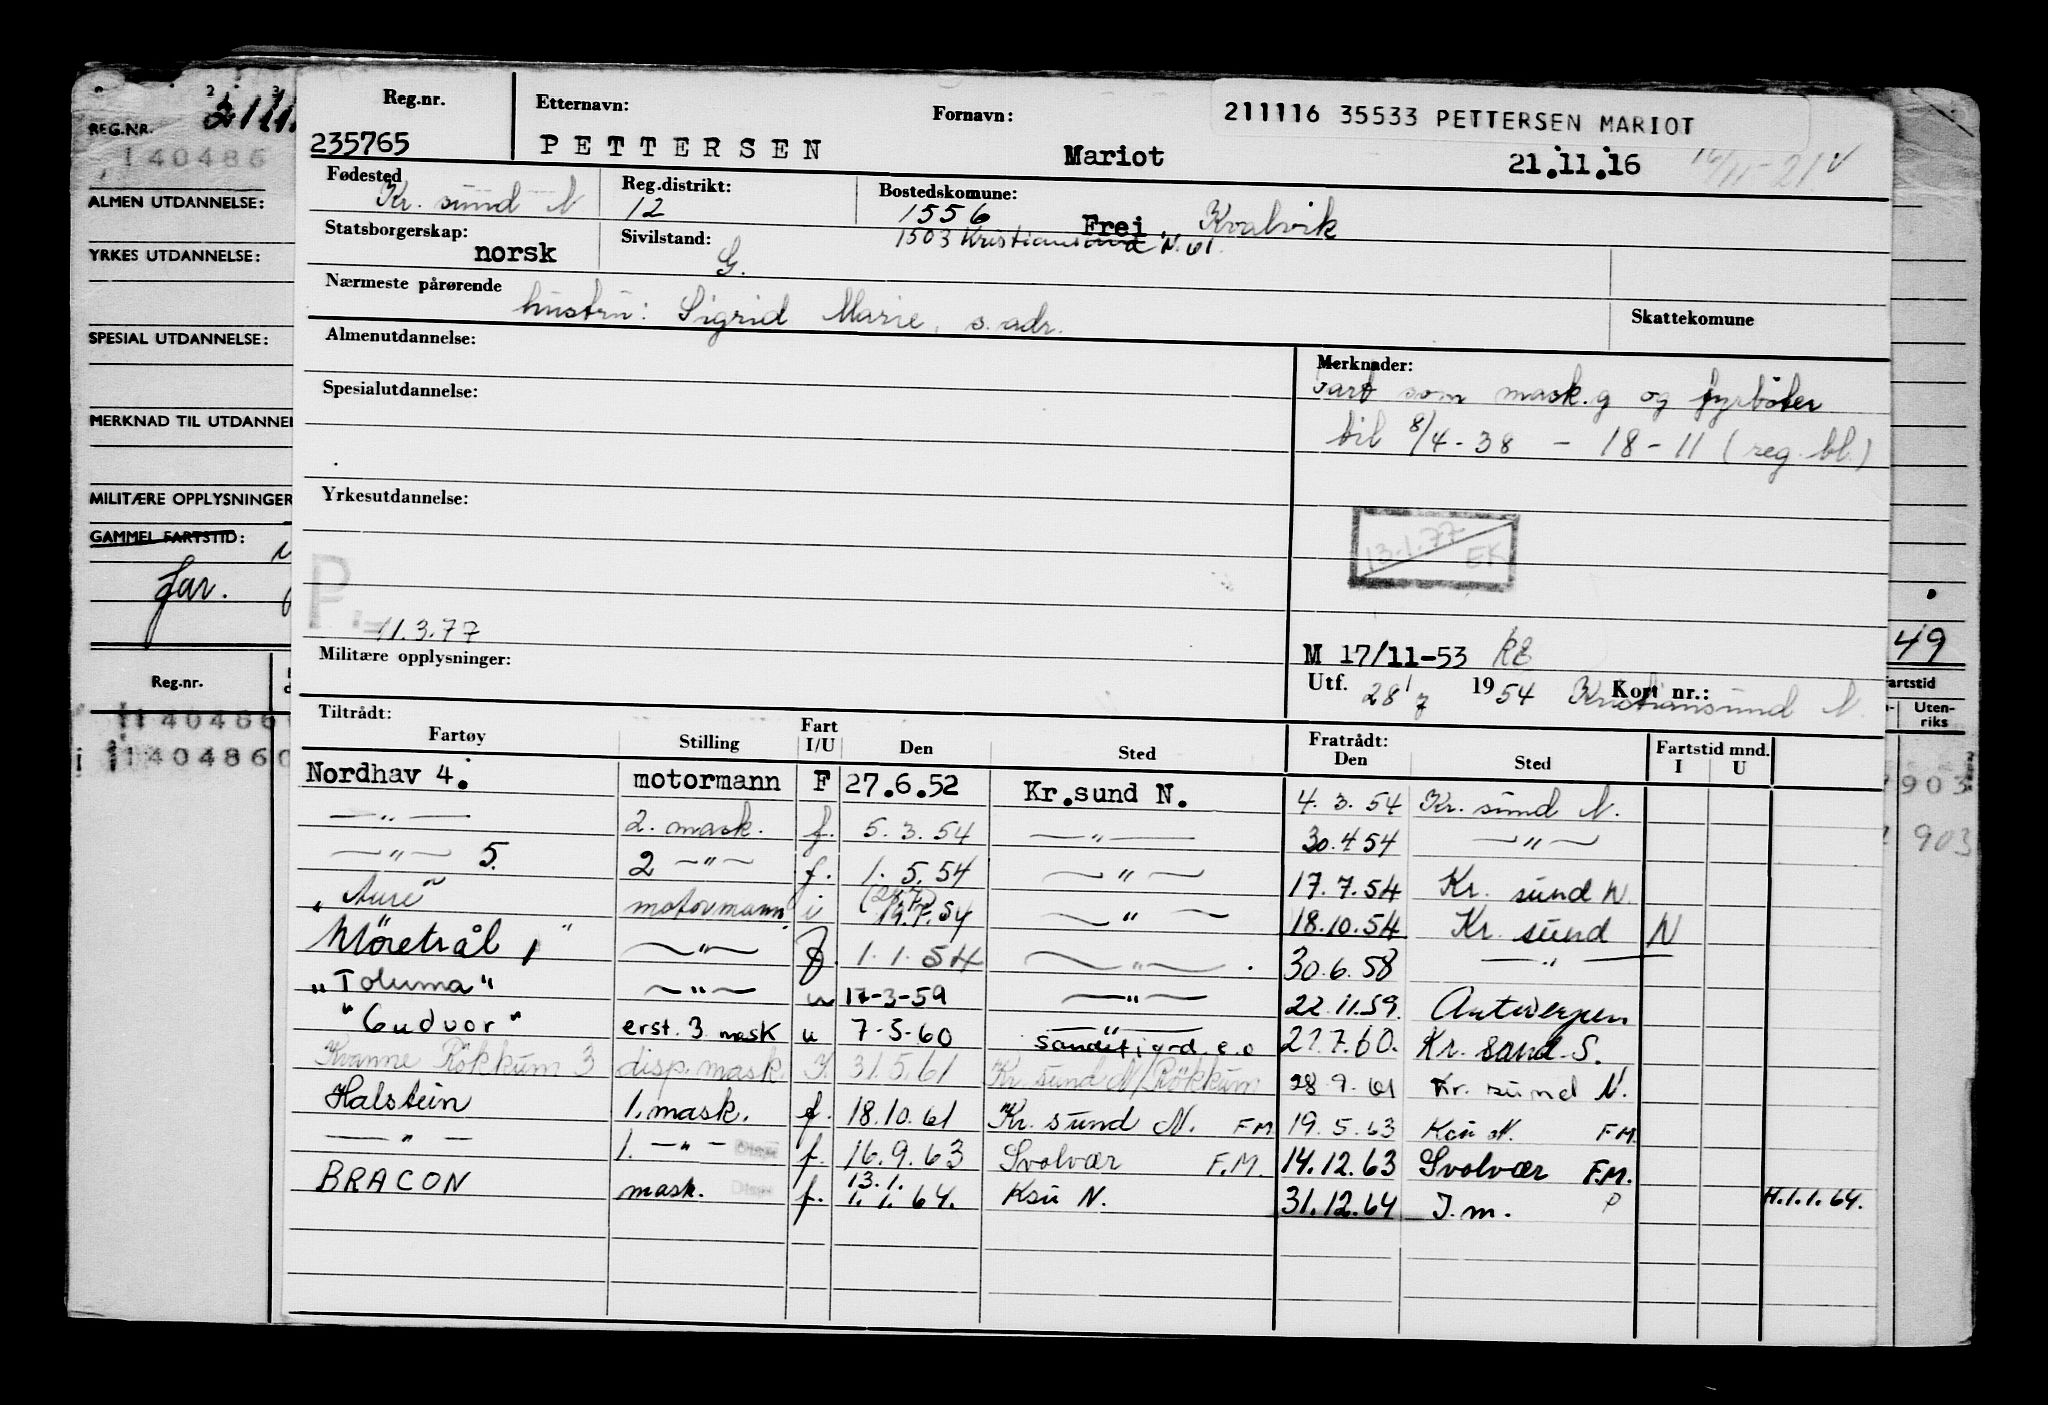 REG.NR.
140486
ALMEN UTDANNELSE:
YRKES UTDANNELSE:
SPESIAL UTDANNELSE:
MERKNAD TIL UTDANNEL
MILITÆRE OPPLYSNINGER
GAMMEL FARTSTID:
far.
Reg.nr.
1404860
1404860
Reg.nr. Etternavn: Fornavn: 211116 35533 PETTERSEN MARIOT
235765 PETTERSEN Mariot 21.11.16
Fødested Kr. sund N Reg.distrikt: 12 Bostedskomune: 1556 Frei, Kvalvik
Statsborgerskap: norsk Sivilstand: G. 1503 Kristiansund N. 61.
Nærmeste pårørende hustru: Sigrid Marie, s. adr. Skattekomune
Almenutdannelse: Merknader:
Fart som mask.g og fyrbøter
Spesialutdannelse: til 8/4-38 - 18-11 (reg. bl.)
Yrkesutdannelse:
13.1.77 EK
P. 11.3.77
Militære opplysninger: M 17/11-53 RE
Utf. 28/7 1954 Kort nr.: Kristiansund N.
Tiltrådt: Fratrådt: Fartstid mnd.
Fartøy Stilling Fart I/U Den Sted Den Sted I U
Nordhav 4. motormann F 27.6.52 Kr.sund N. 4.3.54 Kr. sund N.
—"— 2. mask. f. 5.3.54 —"— 30.4.54 —"—
—"— 5. 2 —"— f. 1.5.54 —"— 17.7.54 Kr. sund N.
"Aure" motormann i (28.7) 19.7.54 —"— 18.10.54 Kr. sund N
Møretrål 1" —"— f. 1.1.54 —"— 30.6.58 —"—
"Toluma" —"— u 17-3-59 —"— 22.11.59. Antwerpen
"Gudvor" erst. 3 mask u 7-5-60 Sandefjord e.o 27.7.60. Kr. sand. S.
Kvanne Rökkum 3 disp. mask. I. 31.5.61 Kr. sund N/Rökkum 28.9.61 Kr. sund N.
Halstein 1. mask. f. 18.10.61 Kr. sund N. FM 19.5.63 Ksu N. FM.
—"— 1. —"— Disp f. 16.9.63 Svolvær F.M. 14.12.63 Svolvær F.M.
BRACON mask. Disp f. 13.1. 1.1.64. Ksu N. 31.12.64 I.m. P H.1.1.64.
49
artstid
Uten-
riks
903
903